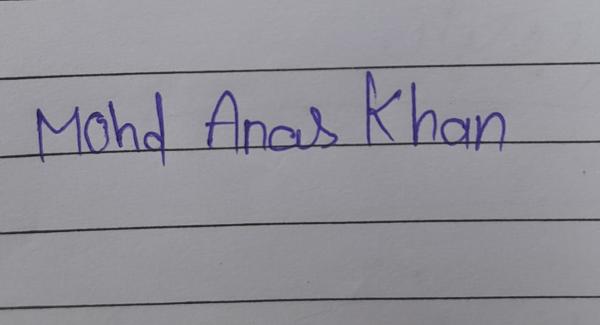 Mohd Anas Khan